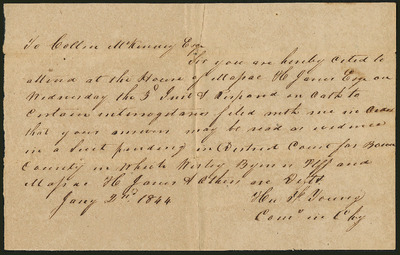 To Collin McKinney Esqr
Sir you are hereby cited to
attend at the House of H Janes Esqr on
Wednesday the 3d Inst & Respond on Oath to
Certain interrogatories filed with me in order
that your answers may be read as evidence
in a Suit pending in District Court for Bowie
County in which Wesley Byrn is Plff and
H Janes & Others are Defts
Jany 2nd 1844
Young
Comr in Chy